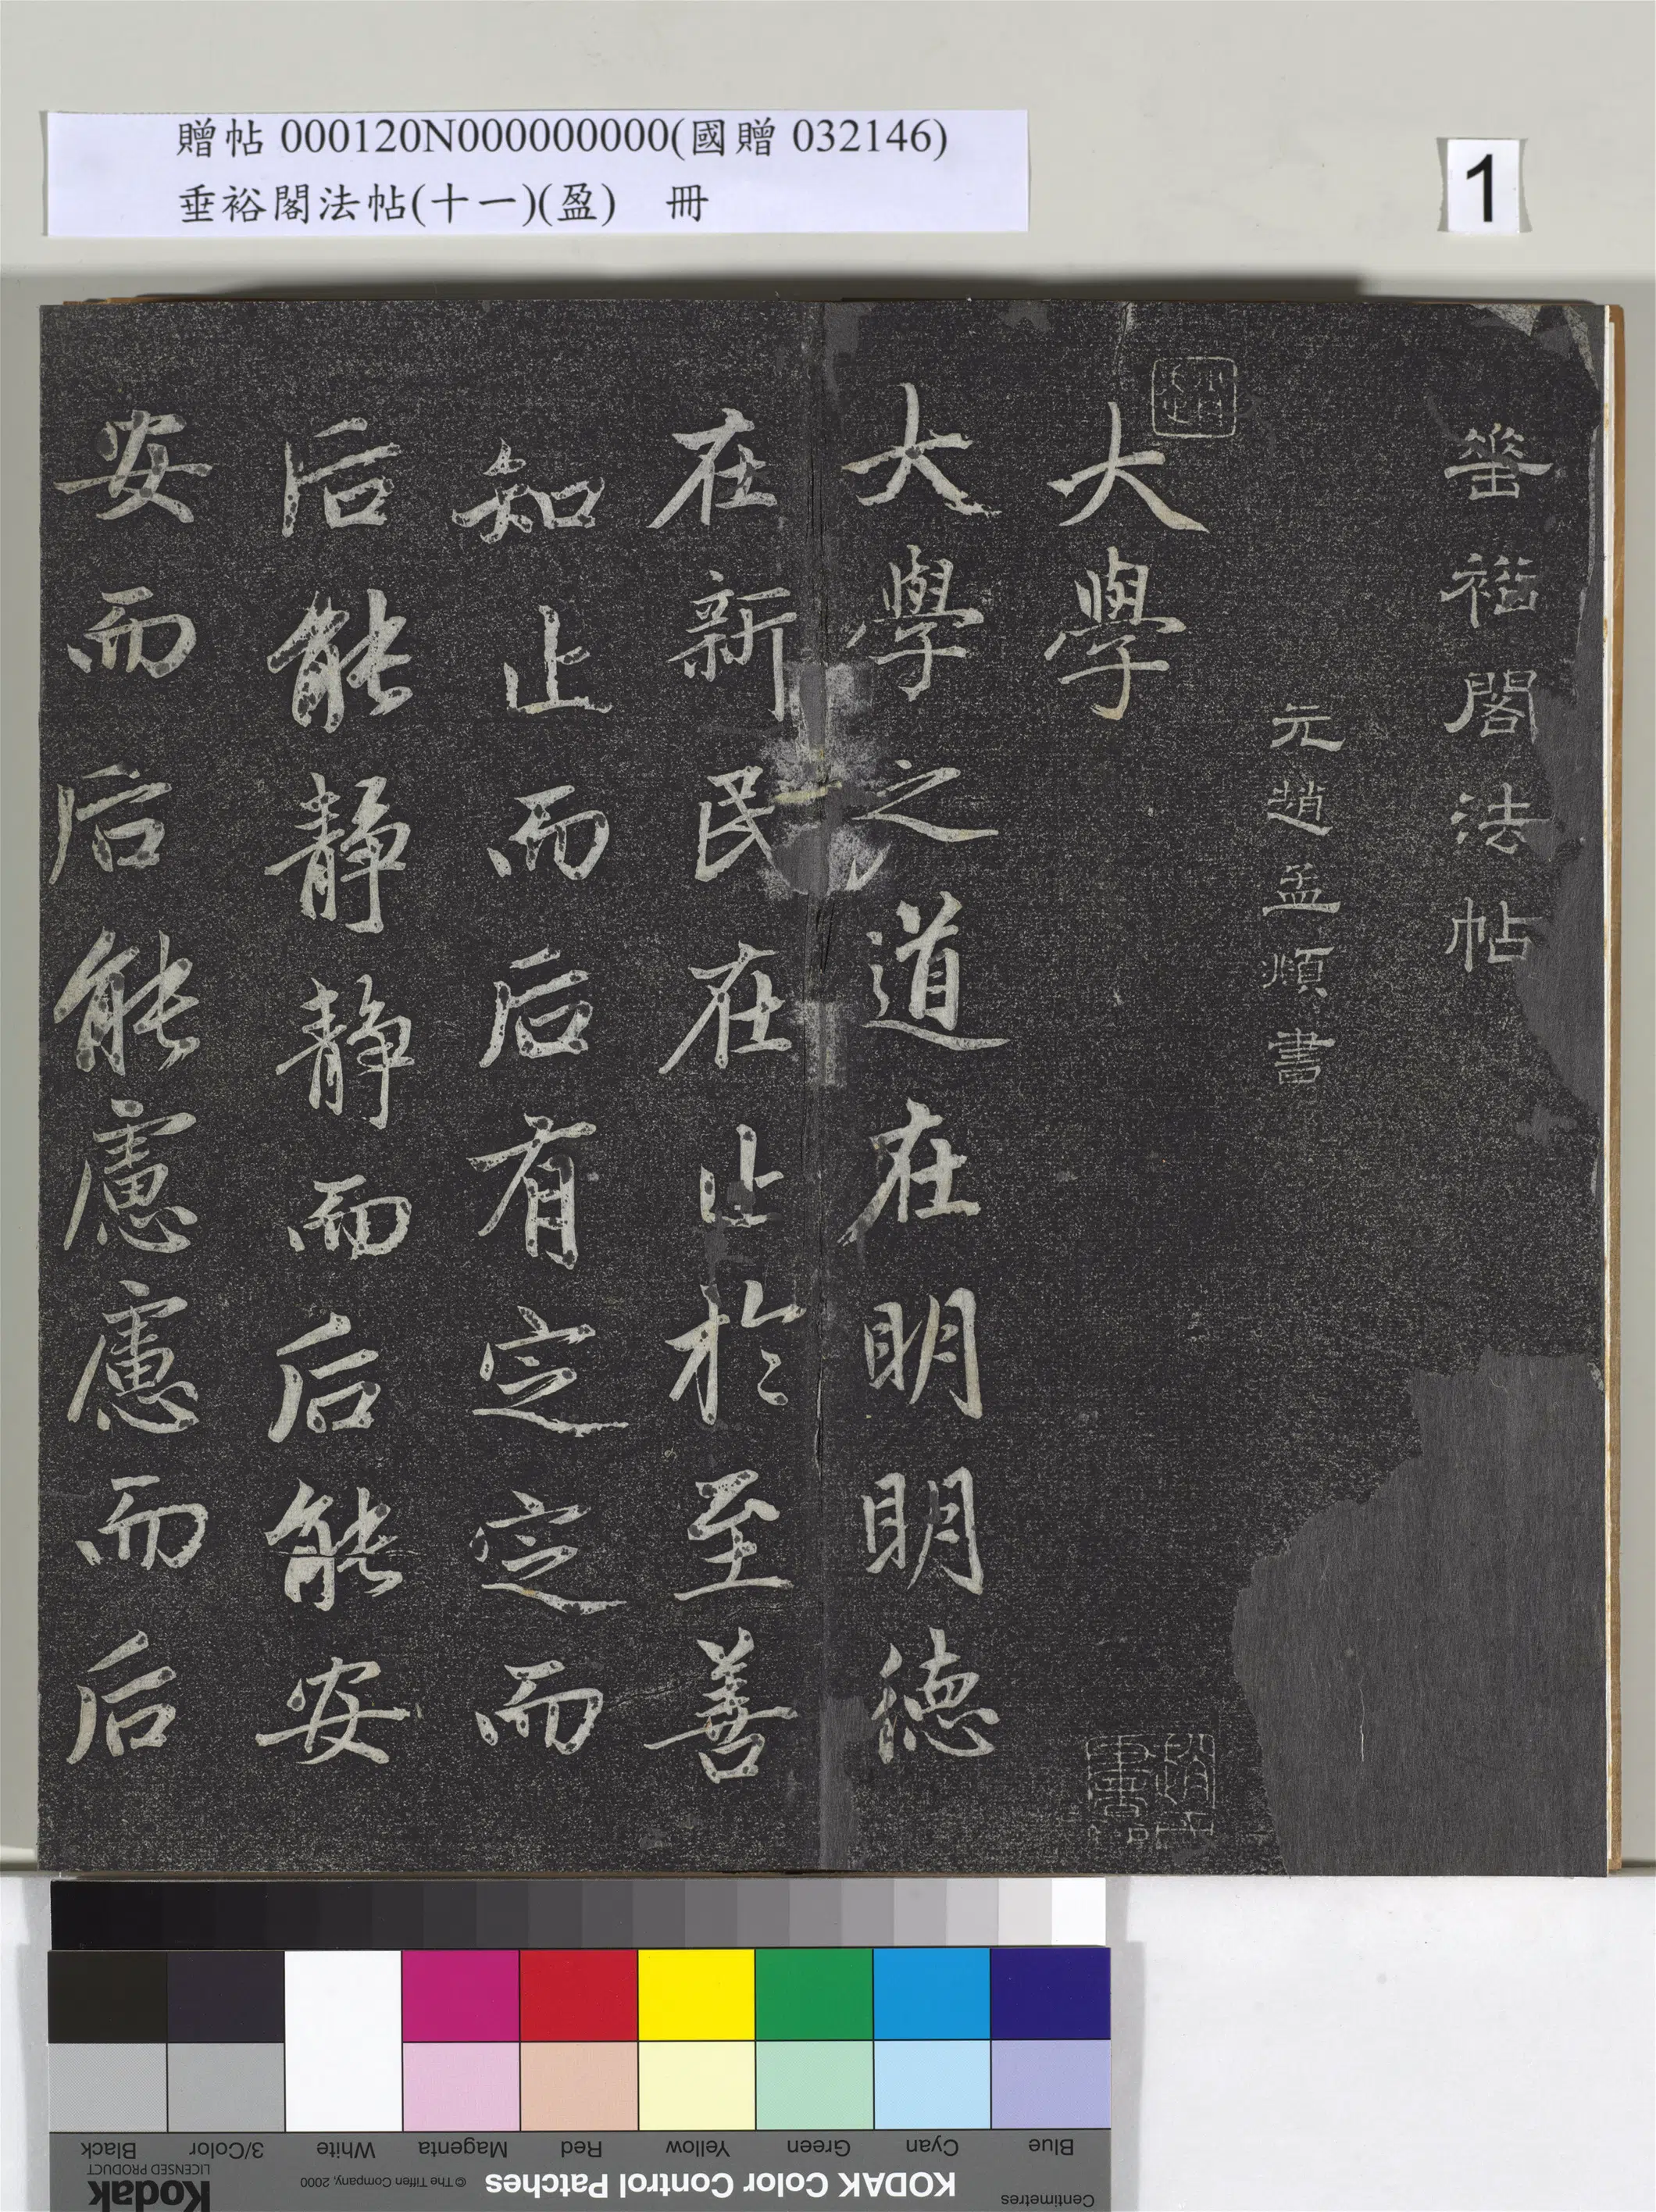 贈帖 000120N000000000(國贈 032146)
垂裕閣法帖(十一)(盈) 冊
1
垂裕閣法帖
元趙孟頫書
大學
大學之道在明明德
在新民在止於至善
知止而后有定定而
后能靜靜而后能安
安而后能慮慮而后
Blue
Cyan
Green
Yellow
Red
Magenta
White
3/Color
Black
Centimetres
KODAK Color Control Patches
© The Tiffen Company, 2000
Kodak
LICENSED PRODUCT